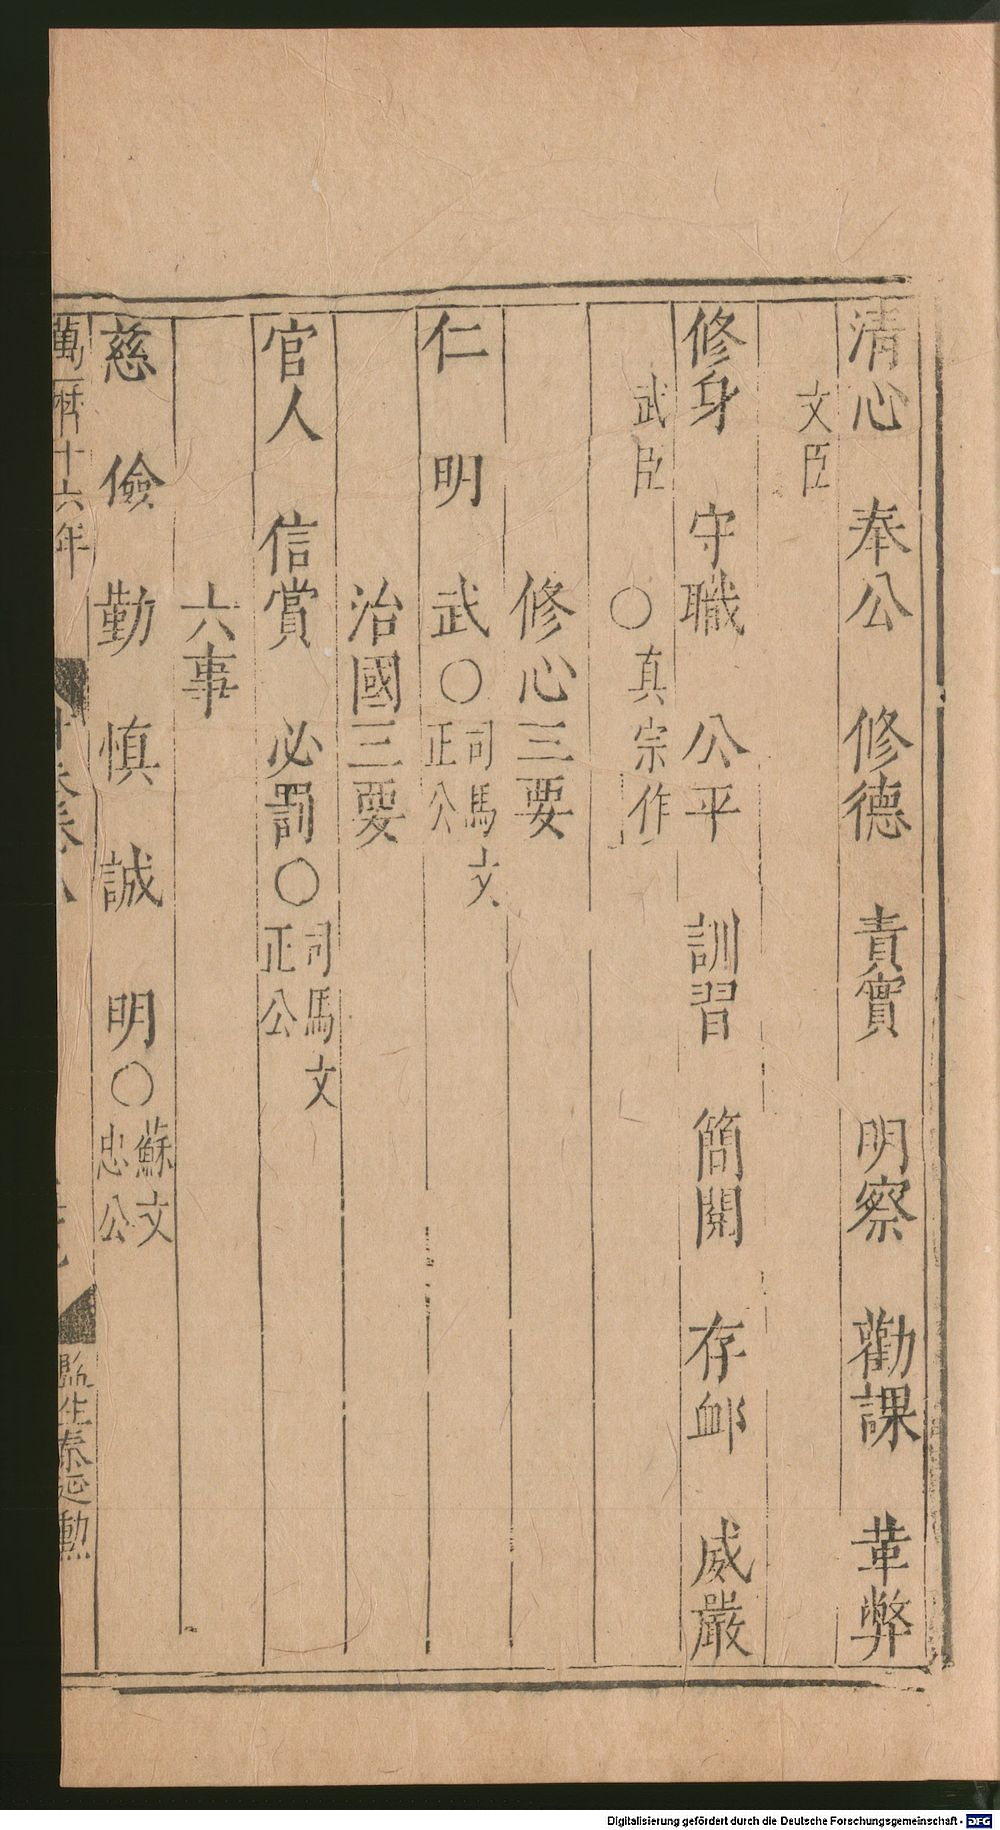 清心 奉公 修德 責實 明察 勸課 革弊
文臣
修身 守職 公平 訓習 簡閱 存䘏 威嚴
武臣 ○真宗作
修心三要
仁 明 武○司馬文正公
治國三要
官人 信賞 必罰○司馬文正公
六事
慈 儉 勤 慎 誠 明○蘇文忠公
萬曆十六年
監生秦延勲
Digitalisierung gefördert durch die Deutsche Forschungsgemeinschaft - DFG